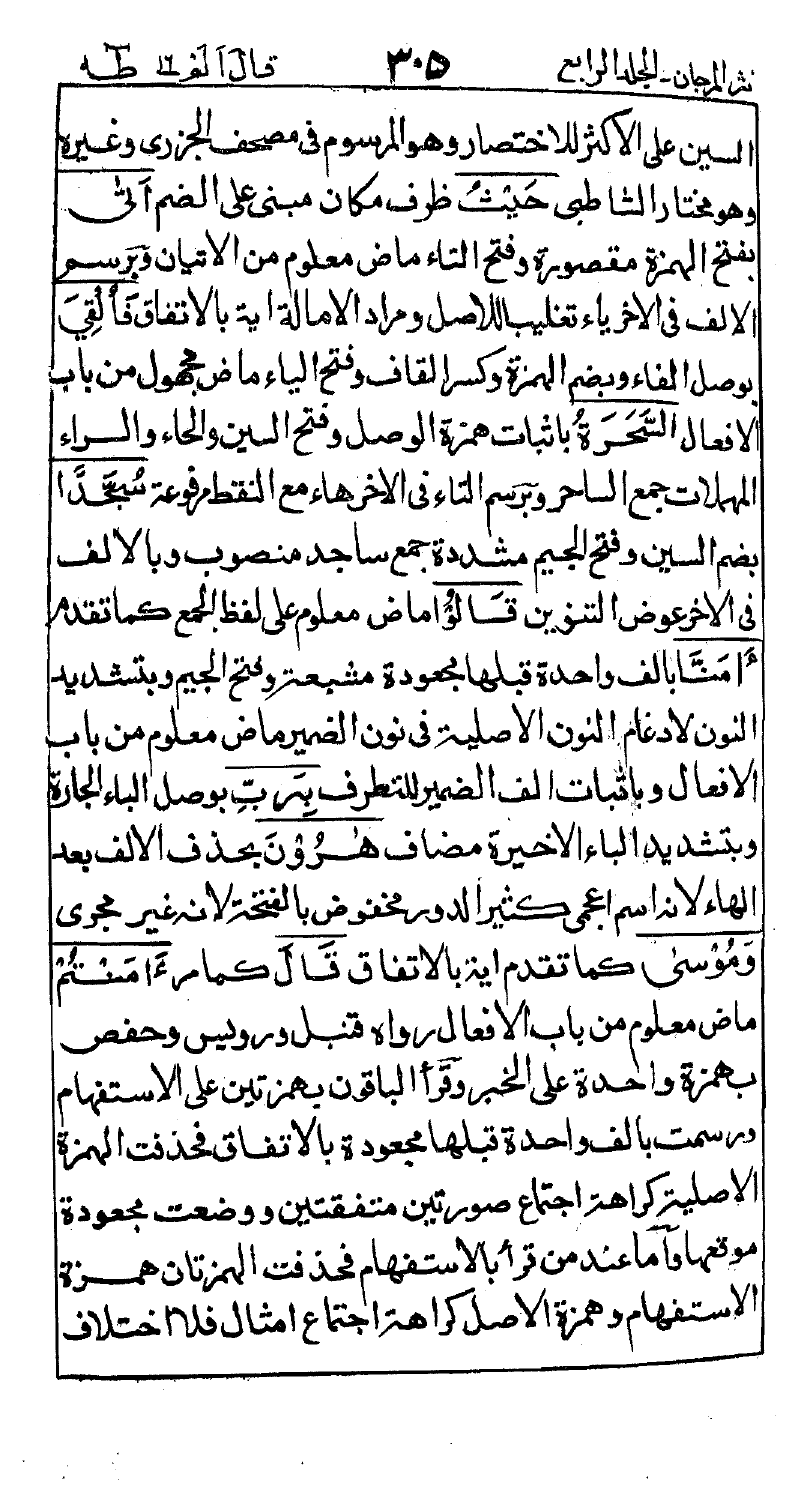 نثر المرجان - المجلد الرابع ٣٠٥ قال الم ١٦ طه
السين على الاكثر للاختصار وهو المرسوم فى مصحف الجزرى وغيره
وهو مختار الشاطبى حَيْثُ ظرف مكان مبنى على الضم اَتٰى
بفتح الهمزة مقصورة وفتح التاء ماض معلوم من الاتيان وبرسم
الالف فى الاخر ياء تغليبا للاصل ومراد الامالة اية بالاتفاق فَاُلْقِيَ
بوصل الفاء وبضم الهمزة وكسر القاف وفتح الياء ماض مجهول من باب
الافعال السَّحَرَةُ باثبات همزة الوصل وفتح السين والحاء والراء
المهملات جمع الساحر وبرسم التاء فى الاخر هاء مع النقط مرفوعة سُجَّدًا
بضم السين وفتح الجيم مشددة جمع ساجد منصوب وبالالف
فى الاخر عوض التنوين قَالُوْا ماض معلوم على لفظ الجمع كما تقدم
ءَامَنَّا بالف واحدة قبلها مجعودة مشبعة وفتح الجيم وبتشديد
النون لادغام النون الاصلية فى نون الضمير ماض معلوم من باب
الافعال وباثبات الف الضمير للتطرف بِرَبِّ بوصل الباء الجارة
وبتشديد الباء الاخيرة مضاف هٰرُوْنَ بحذف الالف بعد
الهاء لانه اسم اعجمى كثير الدور مخفوض بالفتحة لانه غير مجرى
وَمُوْسٰى كما تقدم اية بالاتفاق قَالَ كما مر ءَامَنْتُمْ
ماض معلوم من باب الافعال رواه قنبل ورويس وحفص
بهمزة واحدة على الخبر وقرأ الباقون بهمزتين على الاستفهام
ورسمت بالف واحدة قبلها مجعودة بالاتفاق فحذفت الهمزة
الاصلية كراهة اجتماع صورتين متفقتين ووضعت مجعودة
موقعها وأما عند من قرأ بالاستفهام فحذفت الهمزتان همزة
الاستفهام وهمزة الاصل كراهة اجتماع امثال فلا اختلاف